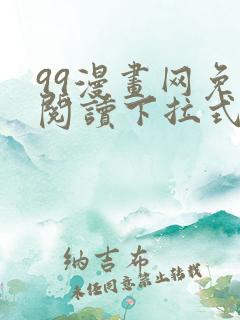 99漫畫网免
閱讀下拉式
纳吉布
未经同意禁止转载